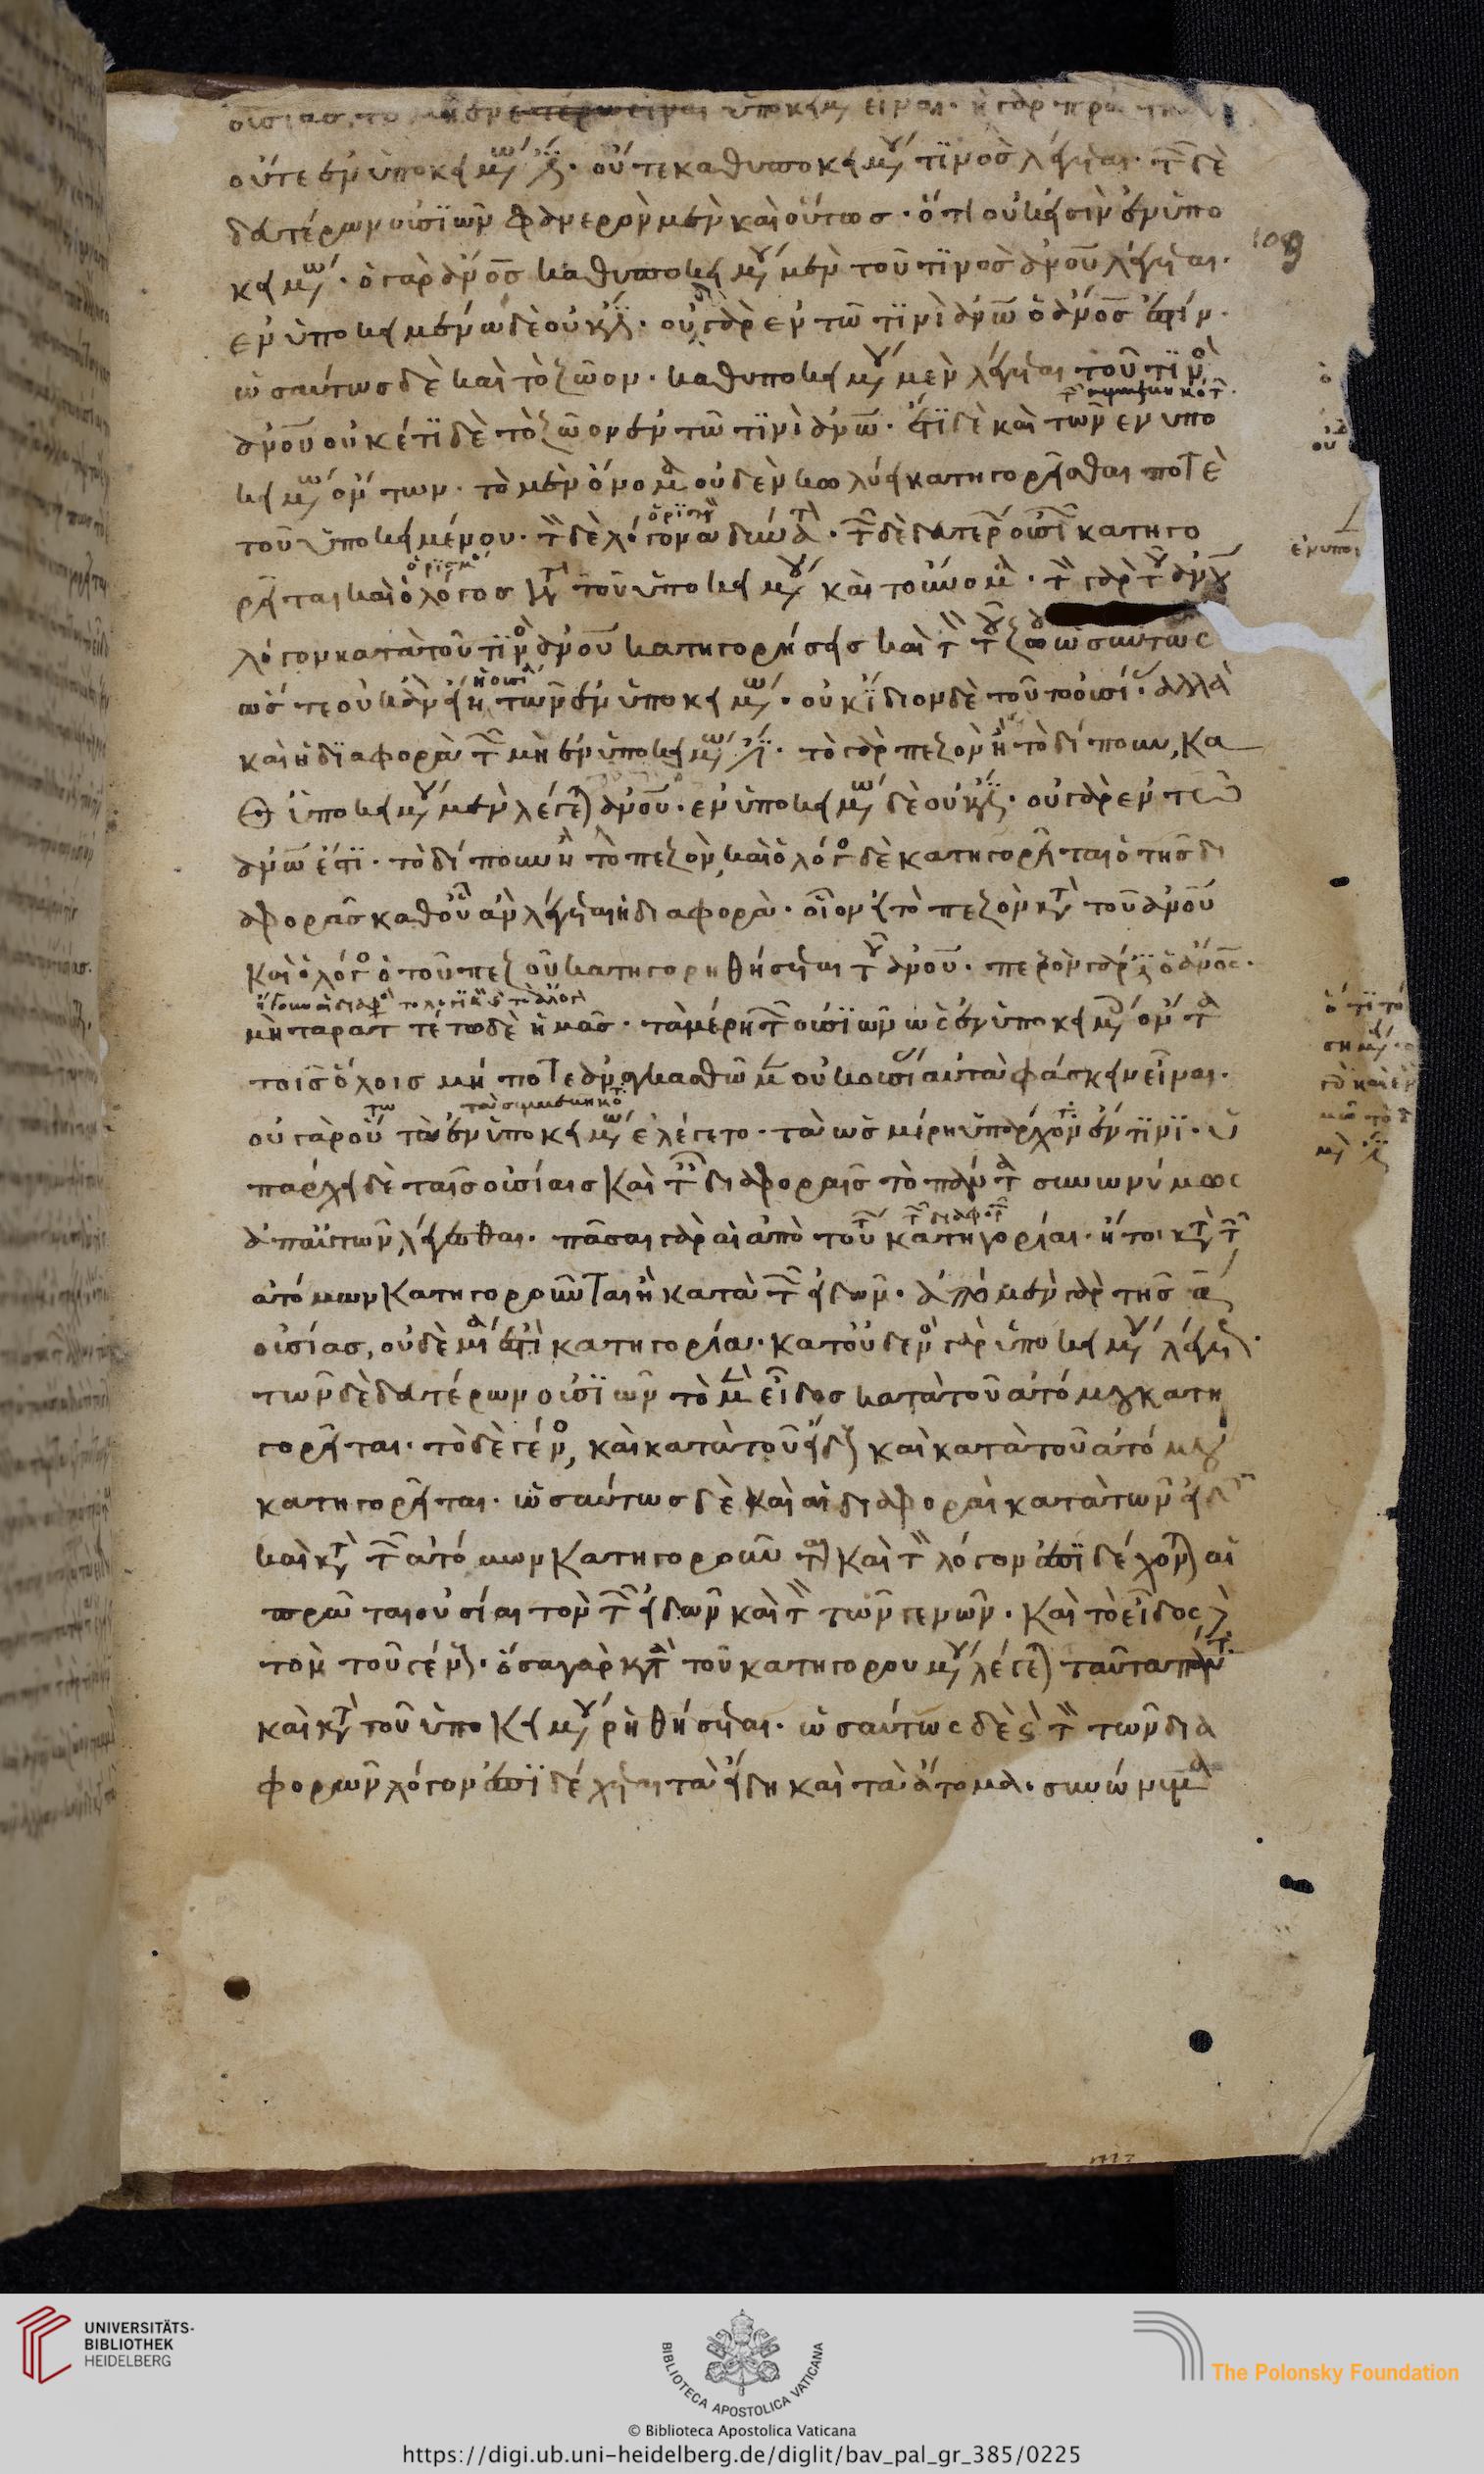 οὐσίας, τὸ μὴ ἐν ὑποκειμ εἶναι· ἡ γὰρ πρώτη
οὔτε ἐν ὑποκειμω ἐστιν· οὔτε καθ υποκειμου τινὸς λέγεται· τῶν δὲ
δευτέρων οὐσιῶν φανερὸν μὲν καὶ οὕτως· ὅτι οὐκ εἰσὶν ἐν ὑπο
κειμω· ὁ γὰρ ἄνος καθ υποκειμου μὲν τοῦ τινὸς ἀνου λέγεται·
ἐν ὑποκειμένω δὲ οὐκ ἐστιν· οὐ γὰρ ἐν τῶ τινὶ ἀνω ὁ ἄνος ἐστίν·
ὡσαύτως δὲ καὶ τὸ ζῶον· καθ υποκειμου μὲν λέγεται τοῦ τινὸς
ἀνου οὐκ ἔτι δὲ τὸ ζῶον ἐν τῶ τινὶ ἀνω· ἔτι δὲ καὶ τῶν ἐν υπο
κειμω ὄντων· τὸ μὲν ὄνομα οὐδὲν κωλύει κατηγορεῖσθαι ποτὲ
τοῦ ὑποκειμένου· τὸν δὲ λόγον ἀδύνατον· τῶν δὲ δευτέρων οὐσιῶν κατηγο
ρεῖται καὶ ὁ λόγος κατὰ τοῦ ὑποκειμου καὶ τοὔνομα· τὸν γὰρ τοῦ ἀνου
λόγον κατὰ τοῦ τινὸς ἀνου κατηγορήσεις καὶ τὸν τοῦ ζώου ὡσαύτως
ὥστε οὐκ ἂν εἴη τῶν ἐν ὑποκειμω· οὐκ ἴδιον δὲ τοῦτο οὐσίας· ἀλλὰ
καὶ ἡ διαφορὰ τῶν μὴ ἐν ὑποκειμω ἐστι· τὸ γὰρ πεζὸν ἢ τὸ δίπουν, κα
θ ὑποκειμου μὲν λέγεται ἀνου· ἐν ὑποκειμω δὲ οὐκ ἐστιν· οὐ γὰρ ἐν τῶ
ἀνω ἐστι· τὸ δίπουν ἢ τὸ πεζὸν, καὶ ὁ λόγος δὲ κατηγορεῖται ὁ τῆς δι
αφορᾶς καθ οὗ ἂν λέγεται ἡ διαφορὰ· οἷον εἰ τὸ πεζὸν κατὰ τοῦ ἀνου
καὶ ὁ λόγος ὁ τοῦ πεζοῦ κατηγορηθήσεται τοῦ ἀνου· πεζὸν γάρ ἐστιν ὁ ἄνος·
μὴ ταραττέτω δὲ ἡμᾶς· τὰ μέρη τῶν οὐσιῶν ὡς ἐν ὑποκειμω ὄντα
τοῖς ὅλοις μή ποτε ἀναγκασθῶμεν οὐκ οὐσίας αὐτὰ φάσκειν εἶναι·
οὐ γὰρ οὕτω τὰ ἐν ὑποκειμω ἐλέγετο· τὰ ὡς μέρη ὑπάρχοντα ἔν τινι· ὑ
πάρχει δὲ ταῖς οὐσίαις καὶ ταῖς διαφοραῖς τὸ πάντα συνωνύμως
ἀπ αὐτῶν λέγεσθαι· πᾶσαι γὰρ αἱ ἀπὸ τούτων κατηγορίαι· ἤτοι κατὰ τῶν
ἀτόμων κατηγοροῦνται ἢ κατὰ τῶν εἰδῶν· ἀπὸ μὲν γὰρ τῆς α
οὐσίας, οὐδεμία ἐστὶ κατηγορία· κατ οὐδενὸς γὰρ ὑποκειμου λέγεται·
τῶν δὲ δευτέρων οὐσιῶν τὸ μὲν εἶδος κατὰ τοῦ ἀτόμου κατη
γορεῖται· τὸ δὲ γένος, καὶ κατὰ τοῦ εἴδους καὶ κατὰ τοῦ ἀτόμου
κατηγορεῖται· ὡσαύτως δὲ καὶ αἱ διαφοραὶ κατὰ τῶν εἰδῶν
καὶ κατὰ τῶν ἀτόμων κατηγοροῦνται καὶ τὸν λόγον ἐπιδέχονται αἱ
πρῶται οὐσίαι τὸν τῶν εἰδῶν καὶ τὸν τῶν γενῶν· καὶ τὸ εἶδος δὲ
τὸν τοῦ γένους· ὅσα γὰρ κατὰ τοῦ κατηγορουμου λέγεται ταῦτα πάντα
καὶ κατὰ τοῦ ὑποκειμου ῥηθήσεται· ὡσαύτως δὲ καὶ τὸν τῶν δια
φορῶν λόγον ἐπιδέχεται τὰ εἴδη καὶ τὰ ἄτομα· συνώνυμα
109
UNIVERSITÄTS-
BIBLIOTHEK
HEIDELBERG
BIBLIOTECA APOSTOLICA VATICANA
The Polonsky Foundation
© Biblioteca Apostolica Vaticana
https://digi.ub.uni-heidelberg.de/diglit/bav_pal_gr_385/0225